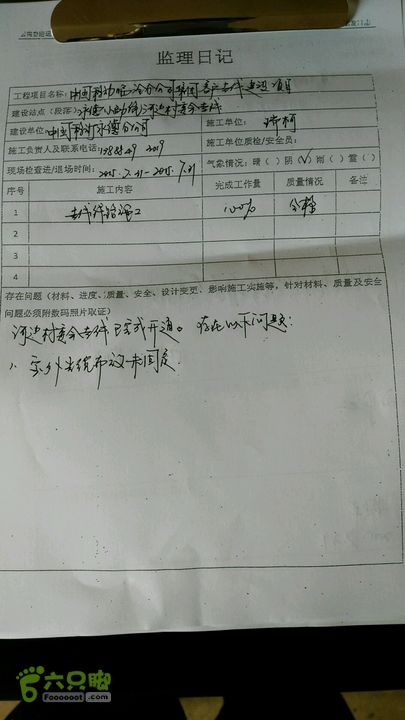 监理日记
工程项目名称：中国移动临沧分公司 客户专线建设项目
建设站点（段落）：永德小勐统河边村委会专线
建设单位：中国移动永德分公司 施工单位：
施工负责人及联系电话： 施工单位质检/安全员：
现场检查进/退场时间：2015.7.21-2015.7.21 气象情况：晴（ ）阴（√）雨（ ）雪（ ）
序号 施工内容 完成工作量 质量情况 备注
1 专线线路施工 100% 合格
2
3
4
存在问题（材料、进度、质量、安全、设计变更、影响施工实施等，针对材料、质量及安全
问题必须附数码照片取证）
河边村委会专线已完成开通。存在以下问题：
1、室外光缆布放未固定
六只脚
Foooooot.com